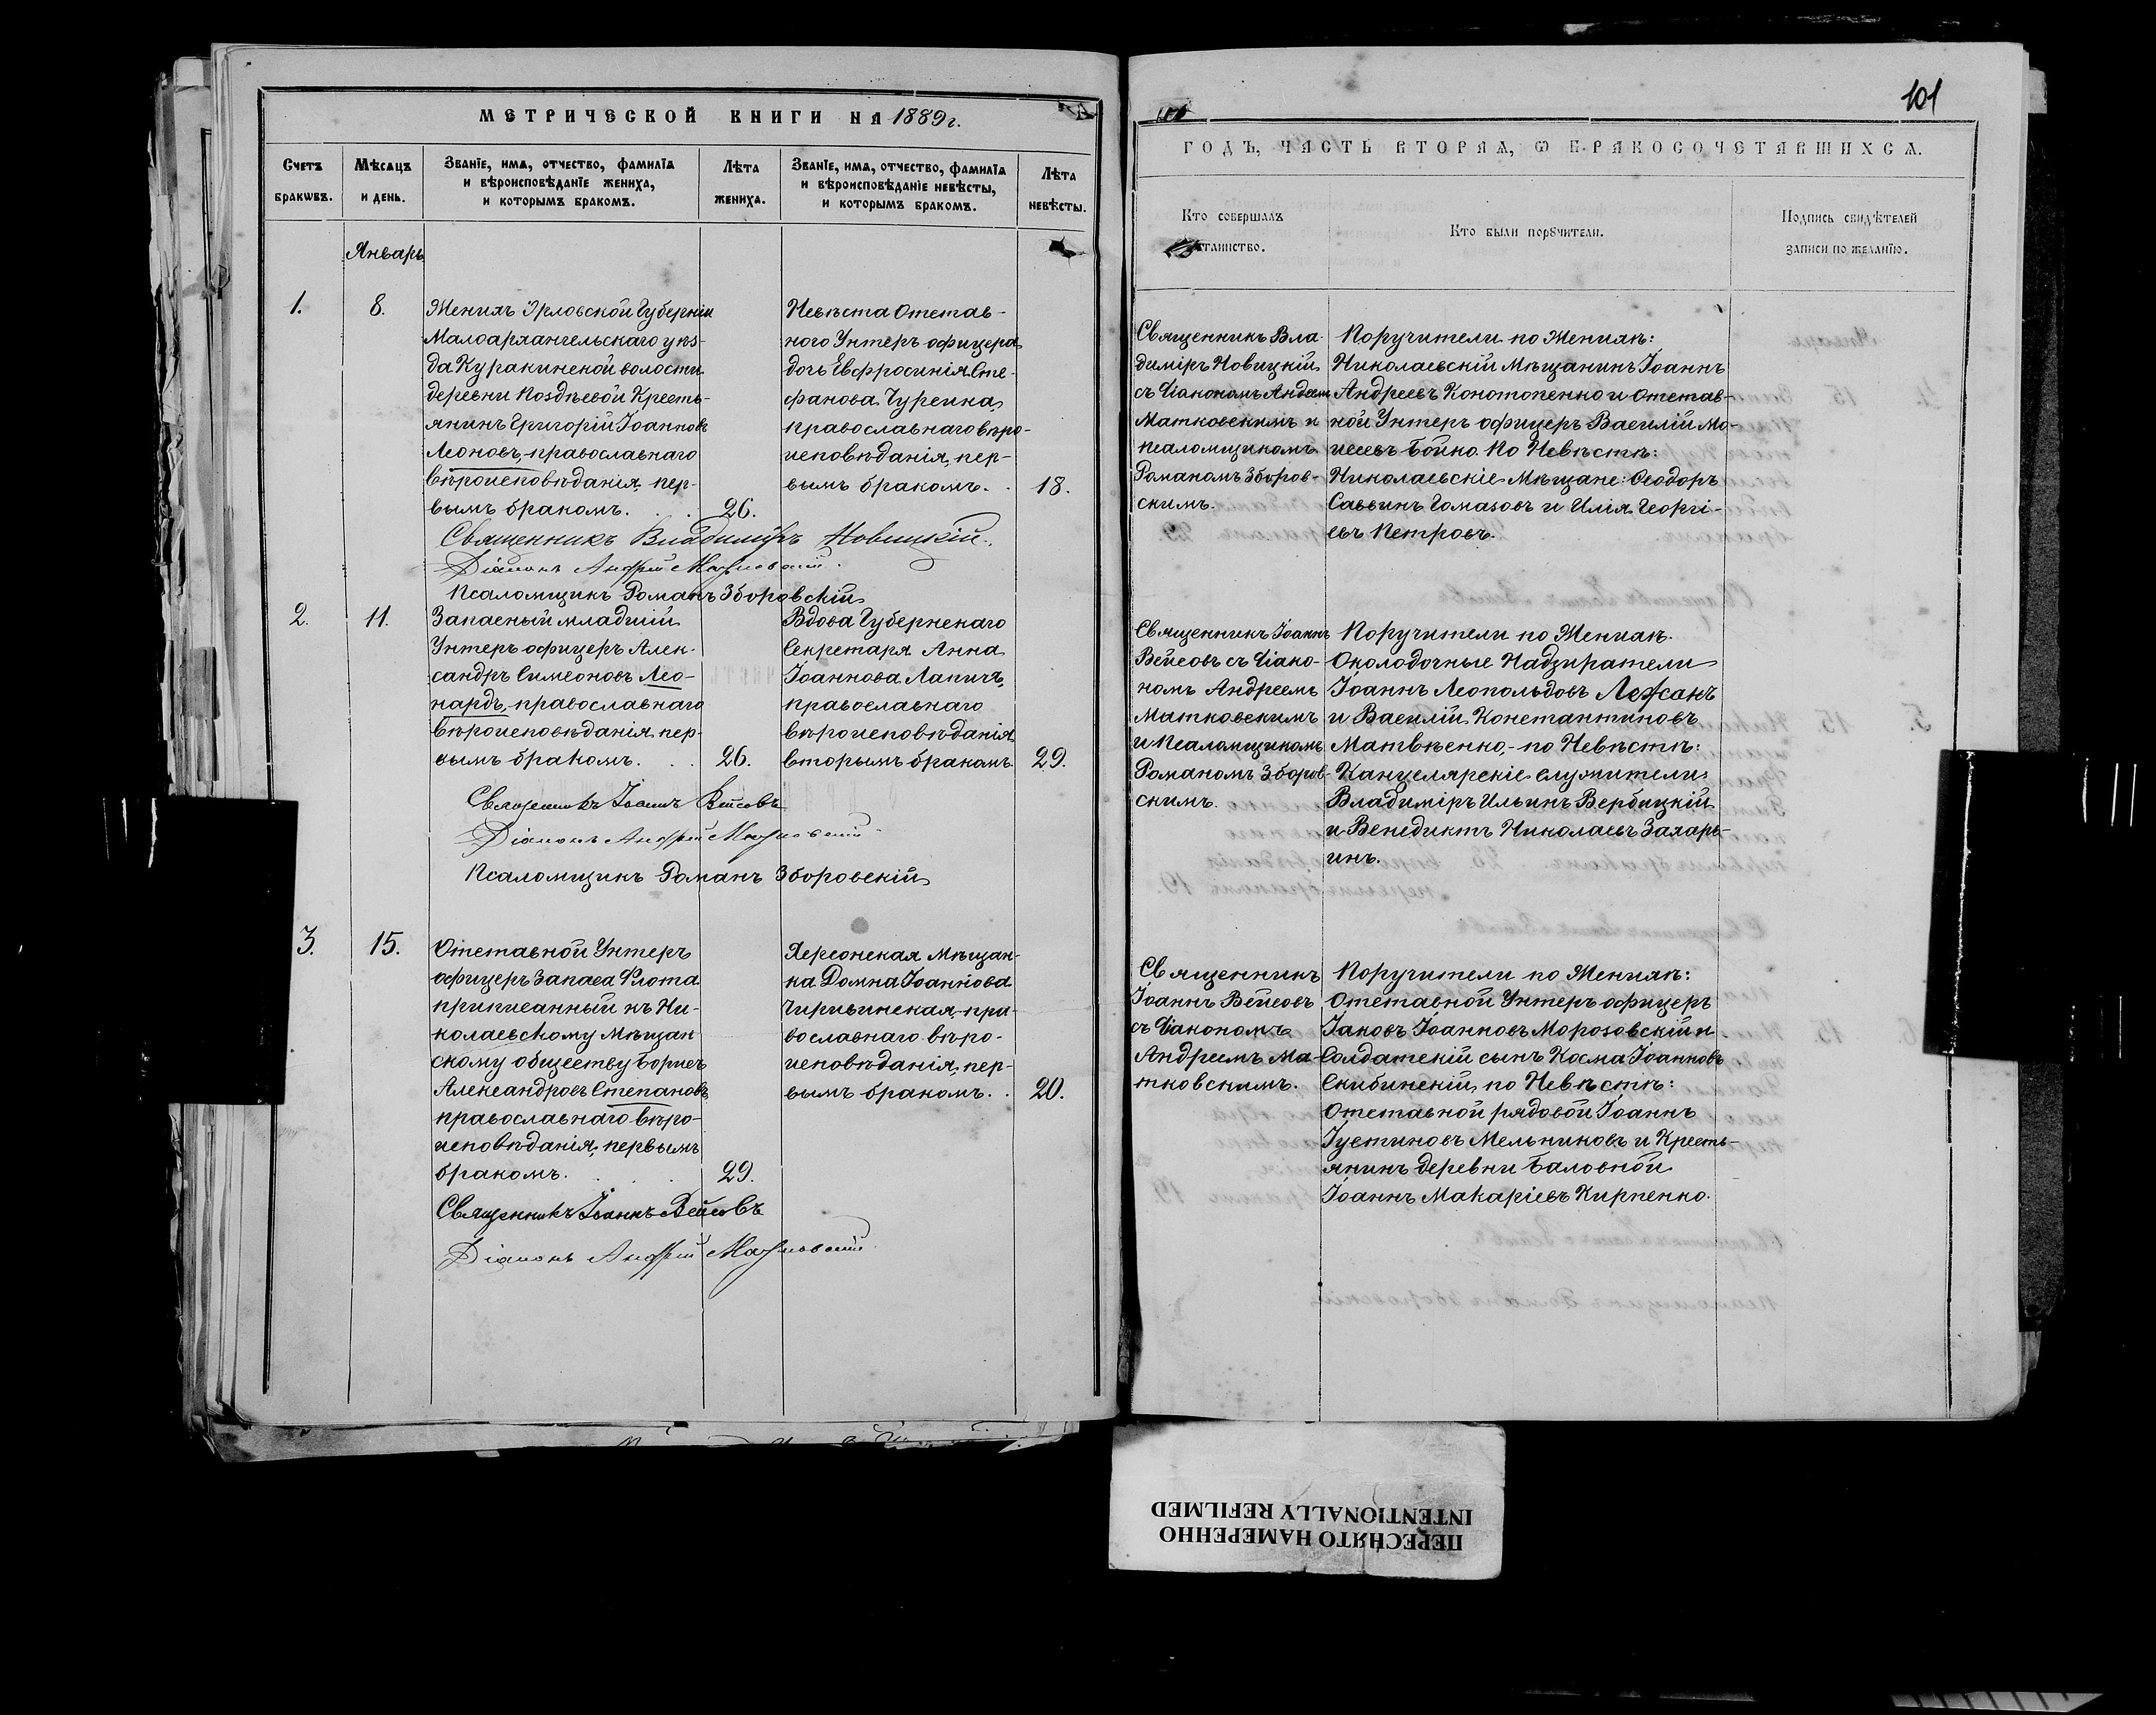 МЕТРИЧЕСКОЙ КНИГИ НА 1889 г.
Счетъ браковъ.
Мѣсяцъ и день.
Званіе, имя, отчество, фамилія
и вѣроисповѣданіе жениха,
и которымъ бракомъ.
Лѣта жениха.
Званіе, имя, отчество, фамилія
и вѣроисповѣданіе невѣсты,
и которымъ бракомъ.
Лѣта невѣсты.
Январь
1.
8.
Женихъ Орловской Губерніи
Малоархангельскаго уѣз-
да Куракинской волости
деревни Поздѣевой Кресть-
янинъ Григорій Іоанновъ
Леоновъ, православнаго
вѣроисповѣданія, пер-
вымъ бракомъ. . .
26.
Невѣста Отстав-
ного Унтеръ офицера
дочь Евфросинія Сте-
фанова Чурсина,
православнаго вѣро-
исповѣданія, пер-
вымъ бракомъ. .
18.
Священникъ Владиміръ Новицкій.
Діаконъ Андрей Матковскій.
Псаломщикъ Романъ Зборовскій
2.
11.
Запасный младшій
Унтеръ офицеръ Алек-
сандръ Симеоновъ Лео-
нардъ, православнаго
вѣроисповѣданія, пер-
вымъ бракомъ. . .
26.
Вдова Губернскаго
Секретаря Анна
Іоаннова Лапичъ,
православнаго
вѣроисповѣданія
вторымъ бракомъ.
29.
Священникъ Іоаннъ Вейсовъ
Діаконъ Андрей Матковскій
Псаломщикъ Романъ Зборовскій
3.
15.
Отставной Унтеръ
офицеръ Запаса Флота
приписанный къ Ни-
колаевскому Мѣщан
скому обществу Борисъ
Александровъ Степановъ,
православнаго вѣро-
исповѣданія, первымъ
бракомъ. . . .
29.
Херсонская Мѣщан-
ка Домна Іоаннова
Чиривинская, пра-
вославнаго вѣро-
исповѣданія, пер-
вымъ бракомъ. .
20.
Священникъ Іоаннъ Вейсовъ
Діаконъ Андрей Матковскій
101
ГОДЪ, ЧАСТЬ ВТОРАЯ, Ѡ БРАКОСОЧЕТАВШИХСЯ.
Кто совершалъ таинство.
Кто были порꙋчители.
Подпись свидѣтелей
записи по желанію.
Священникъ Вла-
диміръ Новицкій
съ Діакономъ Андреем
Матковскимъ и
псаломщикомъ
Романомъ Зборов-
скимъ.
Поручители по Женихѣ:
Николаевскій Мѣщанинъ Іоаннъ
Андреевъ Конотопенко и Отстав-
ной Унтеръ офицеръ Василій Мо-
исеевъ Бойко. По Невѣстѣ:
Николаевскіе Мѣщане: Ѳеодоръ
Саввинъ Томазовъ и Илія Георгі-
евъ Петровъ.
Священникъ Іоаннъ
Вейсовъ съ Діако-
номъ Андреемъ
Матковскимъ
и Псаломщикомъ
Романомъ Зборов-
скимъ.
Поручители по Женихѣ.
Околодочные Надзиратели
Іоаннъ Леопольдовъ Лежанъ
и Василій Константиновъ
Матвѣенко, - по Невѣстѣ:
Канцелярскіе служители
Владиміръ Ильинъ Вербицкій
и Венедиктъ Николаевъ Захарь-
инъ.
Священникъ
Іоаннъ Вейсовъ
съ Діакономъ
Андреемъ Ма-
тковскимъ.
Поручители по Женихѣ:
Отставной Унтеръ офицеръ
Іаковъ Іоанновъ Морозовскій и
Солдатскій сынъ Косма Іоанновъ
Скибинскій, по Невѣстѣ:
Отставной рядовой Іоаннъ
Іустиновъ Мельниковъ и Кресть-
янинъ деревни Баловной
Іоаннъ Макаріевъ Кирпенко.
ПЕРЕСНЯТО НАМЕРЕННО
INTENTIONALLY REFILMED